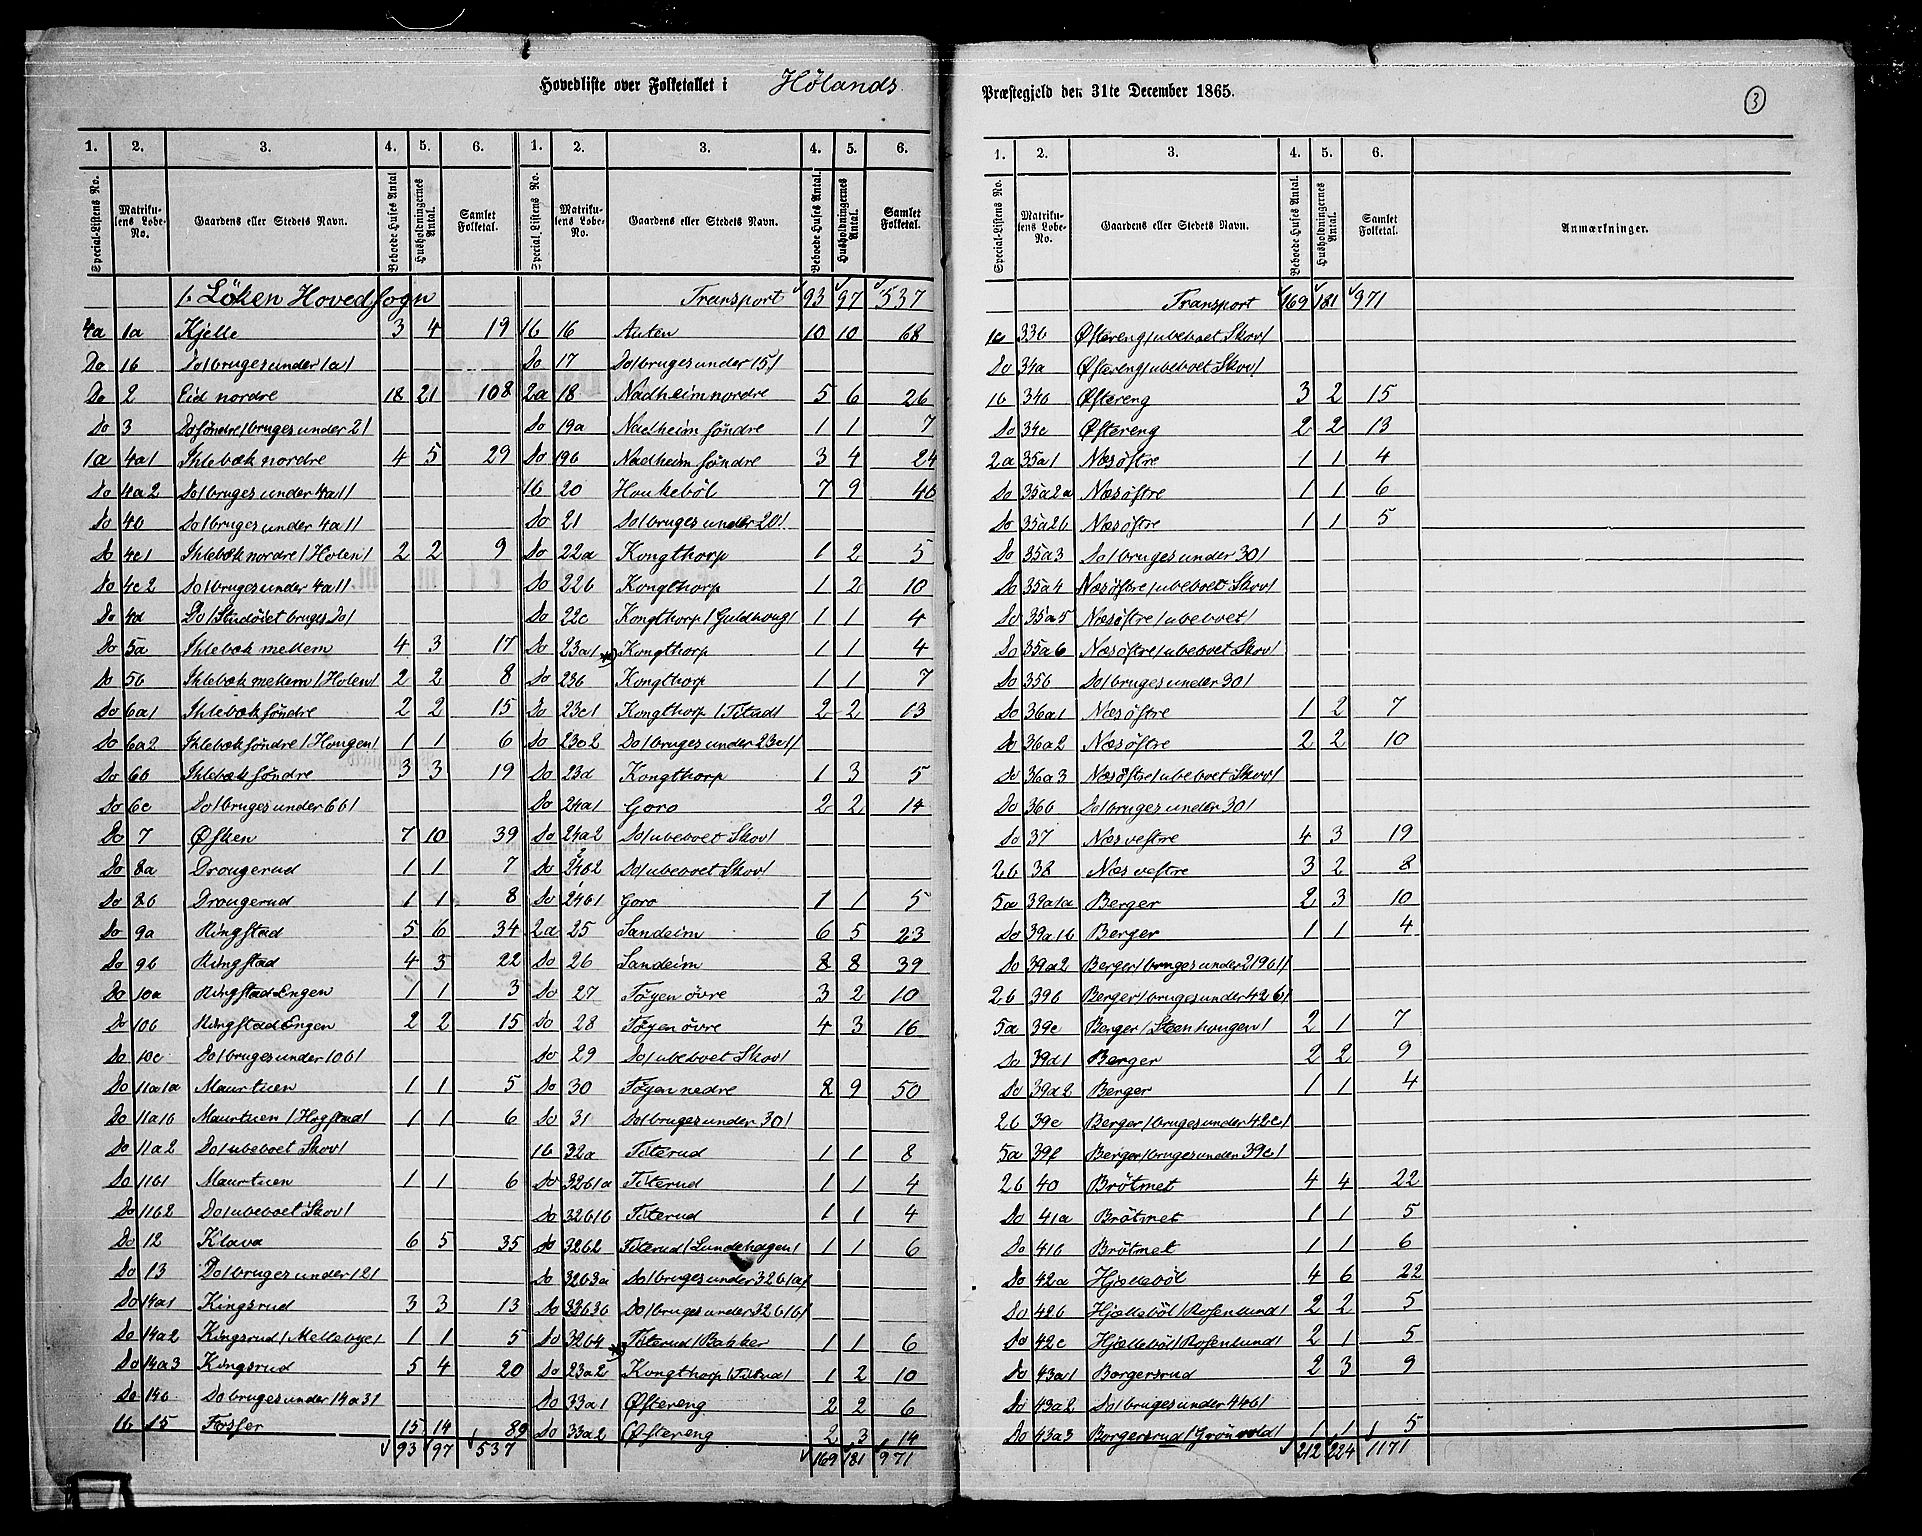 Hovedliste over Folketallet i Hølands
1. 2. 3. 4. 5. 6. 1. 2. 3. 4. 5. 6.
Special-Listens No. Matrikulens Løbe-No. Gaardens eller Stedets Navn. Beboede Huses Antal Husholdningernes Antal. Samlet Folketal. Special Listens No. Matrikulens Løbe-No. Gaardens eller Stedets Navn. Beboede Huses Antal. Husholdningernes Antal. Samlet Folketal.
1. Löken Hovedsogn
4a 1a Kjelle 3 4 19
Do 1b Do/bruges under 1a/
Do 2 Eid nordre 18 21 108
Do 3 Do söndre/bruges under 2/
1a 4a1 Ihlebæk nordre 4 5 29
Do 4a2 Do/bruges under 4a1/
Do 4b Do/bruges under 4a1/
Do 4c1 Ihlebæk nordre/Holen/ 2 2 9
Do 4c2 Do/bruges under 4a1/
Do 4d Do/Studöiet bruges Do/
Do 5a Ihlebæk mellem 4 3 17
Do 5b Ihlebæk mellem/Holen/ 2 2 8
Do 6a1 Ihlebæk söndre 2 2 15
Do 6a2 Ihlebæk söndre/Hougen/ 1 1 6
Do 6b Ihlebæk söndre 3 3 19
Do 6c Do/bruges under 6b/
Do 7 Øsken 7 10 39
Do 8a Drougerud 1 1 7
Do 8b Drougerud 1 1 8
Do 9a Ringstad 5 6 34
Do 9b Ringstad 4 3 22
Do 10a Ringstad Engen 1 1 3
Do 10b Ringstad Engen 2 2 15
Do 10c Do/bruges under 10b/
Do 11a1a Maurtuen 1 1 5
Do 11a1b Maurtuen/Hogstad/ 1 1 6
Do 11a2 Do/ubeboet Skov/
Do 11b1 Maurtuen 1 1 6
Do 11b2 Do/ubeboet Skov/
Do 12 Klava 6 5 35
Do 13 Do/bruges under 12/
Do 14a1 Kingsrud 3 3 13
Do 14a2 Kingsrud/Mellebye/ 1 1 5
Do 14a3 Kingsrud 5 4 20
Do 14b Do bruges under 14a3/
1b 15 Fosser 15 14 89
93 97 537
Transport 93 97 537
1b 16 Auten 10 10 68
Do 17 Do/bruges under 15/
2a 18 Nadheim nordre 5 6 26
Do 19a Nadheim söndre 1 1 7
Do 19b Nadheim söndre 3 4 24
1b 20 Houkeböl 7 9 46
Do 21 Do/bruges under 20/
Do 22a Kongthorp 1 2 5
Do 22b Kongthorp 1 2 10
Do 22c Kongthorp/Guldhoug/ 1 1 4
Do 23a1 Kongthorp 1 1 4
Do 23b Kongthorp 1 1 7
Do 23c1 Kongthorp/Titud/ 2 2 13
Do 23c2 Do/bruges under 23c1/
Do 23d Kongthorp 1 3 5
Do 24a1 Goro 2 2 14
Do 24a2 Do/ubeboet Skov/
Do 24b2 Do/ubeboet Skov/
Do 24b1 Goro 1 1 5
2a 25 Sandeim 6 5 23
Do 26 Sandeim 8 8 39
Do 27 Töyen övre 3 2 10
Do 28 Töyen övre 4 3 16
Do 29 Do/ubeboet Skov/
Do 30 Töyen nedre 8 9 50
Do 31 Do/bruges under 30/
1b 32a Titerud 1 1 8
Do 32b1a Titerud 1 1 4
Do 32b1b Titerud 1 1 4
Do 32b2 Titerud/Lundehagen/ 1 1 6
Do 32b3a Do/bruges under 32b1a/
Do 32b3b Do/bruges under 32b1b/
Do 32b4 Titerud/Bakker 1 1 6
Do 23a2 Kongthorp/Titud/ 1 2 10
Do 33a1 Østereng 2 2 6
Do 33a2 Østereng 2 3 14
169 181 971
Præstegjeld den 31te December 1865.
3
1. 2. 3. 4. 5. 6.
Special-Listens No. Matrikulens Løbe-No. Gaardens eller Stedets Navn. Beboede Huses Antal. Husholdningernes Antal. Samlet Folketal. Anmærkninger.
Transport 169 181 971
1c 33b Østereng/ubeboet Skov/
Do 34a Østereng/ubeboet Skov/
1b 34b Østereng 3 2 15
Do 34c Østereng 2 2 13
2a 35a1 Næs östre 1 1 4
Do 35a2a Næs östre 1 1 6
Do 35a2b Næs östre 1 1 5
Do 35a3 Do/bruges under 30/
Do 35a4 Næs östre/ubeboet Skov/
Do 35a5 Næs östre/ubeboet/
Do 35a6 Næs östre/ubeboet Skov/
Do 35b Do/bruges under 30/
Do 36a1 Næs östre 1 2 7
Do 36a2 Næs östre 2 2 10
Do 36a3 Næs östre/ubeboet Skov/
Do 36b Do/bruges under 30/
Do 37 Næs vestre 4 3 19
2b 38 Næs vestre 3 2 8
5a 39a1a Berger 2 3 10
Do 39a1b Berger 1 1 4
Do 39a2 Berger/bruges under 219b1/
2b 39b Berger/bruges under 42b/
5a 39c Berger/Steenhougen/ 2 1 7
Do 39d1 Berger 2 2 9
Do 39d2 Berger 1 1 4
2b 39e Berger/bruges under 42c/
5a 39f Berger/bruges under 39c/
2b 40 Brötmet 4 4 22
Do 41a Brötmet 1 1 5
Do 41b Brötmet 1 1 6
Do 42a Hjælleböl 4 6 22
Do 42b Hjælleböl/Rosenlund/ 2 2 5
Do 42c Hjælleböl/Rosenlund/ 2 1 5
Do 43a1 Borgersrud 2 3 9
Do 43a2 Do/bruges under 44b/
Do 43a3 Borgersrud/Grönvold/ 1 1 5
212 224 1171